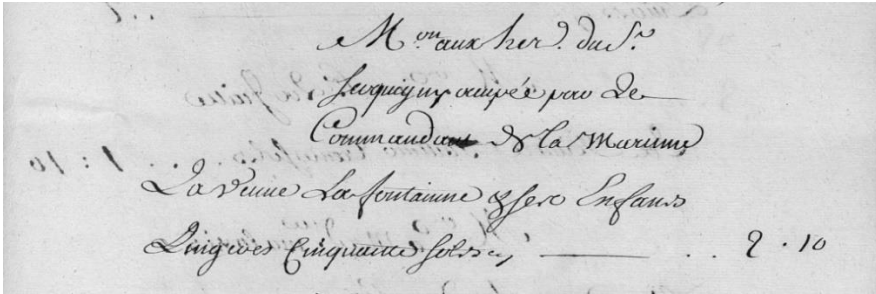 M.on aux her.s du S.r
occupée par Le
Commandant de la Marine
La veuve La fontainne & ses Enfans
Lingeres Cinquante sols cy 2 . 10